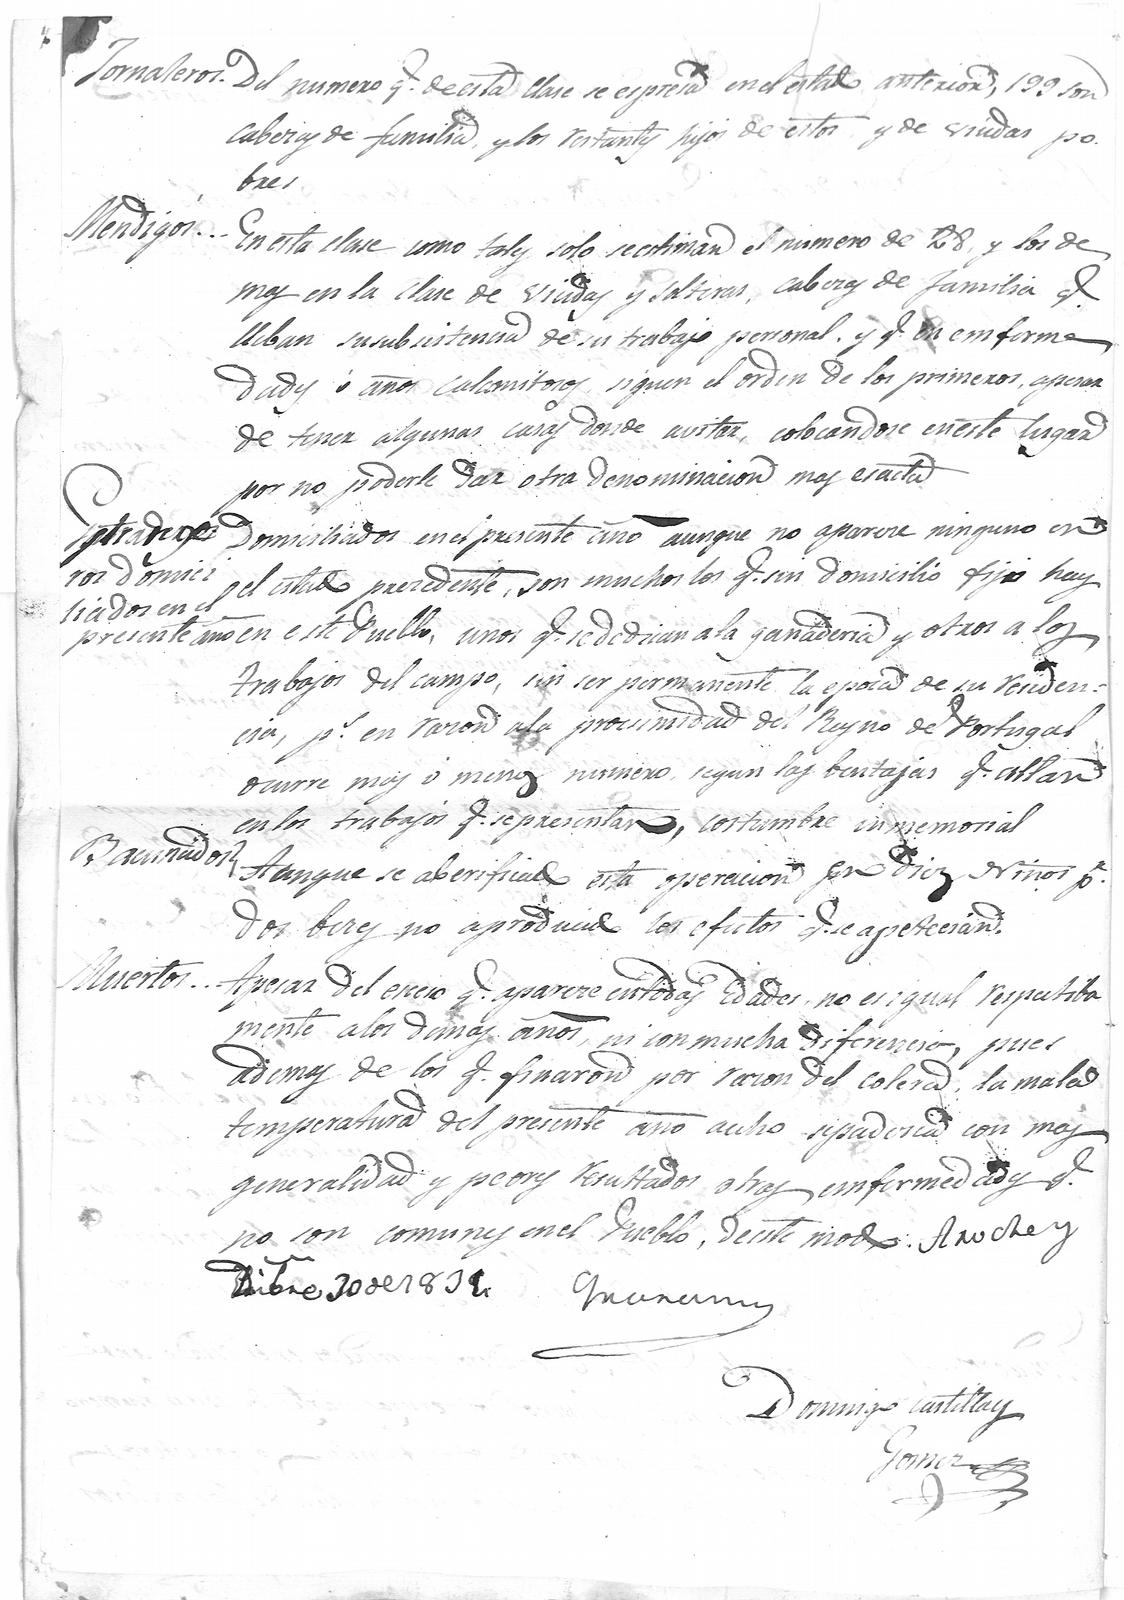 Jornaleros. Del numero q.e de esta Clase se espresa en el estado anterior, 199 son
cabezas de familia, y los restantes hijos de estos, y de viudas po-
bres
Mendigos... En esta clase como tales solo se estiman el numero de 28, y los de
mas en la clase de viudas y solteras, cabezas de familia q.e
lleban su subsistencia de su trabajo personal, y q.e en emferme
dades ó años calamitosos, siguen el orden de los primeros, apesar
de tener algunas casas donde avitar, colocandose en este lugar
por no poderle dar otra denominacion mas esacta
Estrange Domiciliados en el presente año aunque no aparece ninguno en
ros domici el estado precedente, son muchos los q.e sin domicilio fijo hay
liados en el
presente año en este Pueblo, unos q.e se dedican a la ganaderia y otros a los
trabajos del campo, sin ser permanente la epoca de su residen-
cia, p.s en razon a la procsimidad del Reyno de Portugal
ocurre mas ó menos numero, segun las bentajas q.e allan
en los trabajos q.e se presentan, costumbre inmemorial
Bacunados Aunque se aberificado esta operacion en diez Niños p.r
dos beces no aproducido los efectos q.e se apetecian.
Muertos... Apesar del eceso q.e aparece en todas Edades, no es igual respectiba
mente a los demas años, ni con mucha diferencia, pues
ademas de los q.e finaron por razon del colera, la mala
temperatura del presente año aecho se padescan con mas
generalidad y peores resultados otras emfermedades q.e
no son comunes en el Pueblo, de este modo. Aroche y
Dibre 30 de 1834.
Domingo Castilla y
Gomez